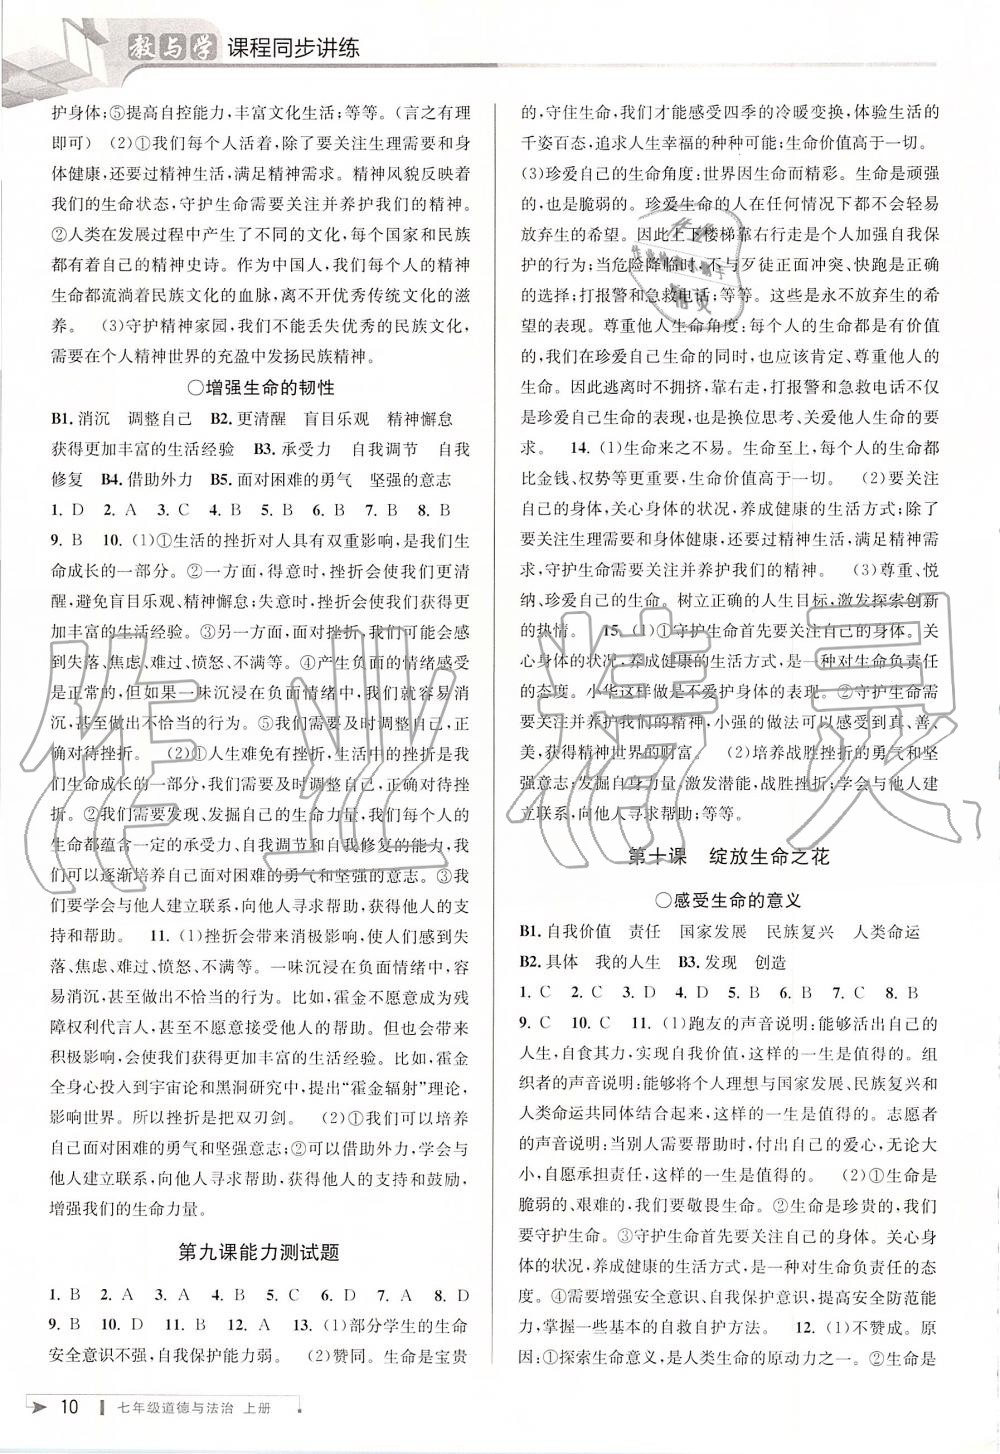 教与学 课程同步讲练
护身体;⑤提高自控能力,丰富文化生活;等等。(言之有理
即可) (2)①我们每个人活着,除了要关注生理需要和身
体健康,还要过精神生活,满足精神需求。精神风貌反映着
我们的生命状态,守护生命需要关注并养护我们的精神。
②人类在发展过程中产生了不同的文化,每个国家和民族
都有着自己的精神史诗。作为中国人,我们每个人的精神
生命都流淌着民族文化的血脉,离不开优秀传统文化的滋
养。 (3)守护精神家园,我们不能丢失优秀的民族文化,
需要在个人精神世界的充盈中发扬民族精神。
○增强生命的韧性
B1. 消沉 调整自己 B2. 更清醒 盲目乐观 精神懈怠
获得更加丰富的生活经验 B3. 承受力 自我调节 自我
修复 B4. 借助外力 B5. 面对困难的勇气 坚强的意志
1. D 2. A 3. C 4. B 5. B 6. B 7. B 8. B
9. B 10. (1)①生活的挫折对人具有双重影响,是我们生
命成长的一部分。②一方面,得意时,挫折会使我们更清
醒,避免盲目乐观、精神懈怠;失意时,挫折会使我们获得更
加丰富的生活经验。③另一方面,面对挫折,我们可能会感
到失落、焦虑、难过、愤怒、不满等。④产生负面的情绪感受
是正常的,但如果一味沉浸在负面情绪中,我们就容易消
沉,甚至做出不恰当的行为。⑤我们需要及时调整自己,正
确对待挫折。 (2)①人生难免有挫折,生活中的挫折是我
们生命成长的一部分,我们需要及时调整自己,正确对待挫
折。②我们需要发现、发掘自己的生命力量,我们每个人的
生命都蕴含一定的承受力、自我调节和自我修复的能力,我
们可以逐渐培养自己面对困难的勇气和坚强的意志。③我
们要学会与他人建立联系,向他人寻求帮助,获得他人的支
持和帮助。 11. (1)挫折会带来消极影响,使人们感到失
落、焦虑、难过、愤怒、不满等。一味沉浸在负面情绪中,容
易消沉,甚至做出不恰当的行为。比如,霍金不愿意成为残
障权利代言人,甚至不愿意接受他人的帮助。但也会带来
积极影响,会使我们获得更加丰富的生活经验。比如,霍金
全身心投入到宇宙论和黑洞研究中,提出“霍金辐射”理论,
影响世界。所以挫折是把双刃剑。 (2)①我们可以培养
自己面对困难的勇气和坚强意志;②可以借助外力,学会与
他人建立联系,向他人寻求帮助,获得他人的支持和鼓励,
增强我们的生命力量。
第九课能力测试题
1. B 2. A 3. D 4. C 5. C 6. D 7. A 8. D
9. B 10. D 11. B 12. A 13. (1)部分学生的生命
安全意识不强,自我保护能力弱。 (2)赞同。生命是宝贵
的,守住生命,我们才能感受四季的冷暖变换,体验生活的
千姿百态,追求人生幸福的种种可能;生命价值高于一切。
(3)珍爱自己的生命角度:世界因生命而精彩。生命是顽强
的,也是脆弱的。珍爱生命的人在任何情况下都不会轻易
放弃生的希望。因此上下楼梯靠右行走是个人加强自我保
护的行为;当危险降临时,不与歹徒正面冲突、快跑是正确
的选择;打报警和急救电话;等等。这些是永不放弃生的希
望的表现。尊重他人生命角度:每个人的生命都是有价值
的,我们在珍爱自己生命的同时,也应该肯定、尊重他人的
生命。因此逃离时不拥挤,靠右走,打报警和急救电话不仅
是珍爱自己生命的表现,也是换位思考、关爱他人生命的要
求。 14. (1)生命来之不易。生命至上,每个人的生命都
比金钱、权势等更重要,生命价值高于一切。 (2)要关注
自己的身体,关心身体的状况,养成健康的生活方式;除了
关注生理需要和身体健康,还要过精神生活,满足精神需
求,守护生命需要关注并养护我们的精神。 (3)尊重、悦
纳、珍爱自己的生命。树立正确的人生目标,激发探索创新
的热情。 15. (1)①守护生命首先要关注自己的身体。关
心身体的状况,养成健康的生活方式,是一种对生命负责任
的态度。小华这样做是不爱护身体的表现。②守护生命需
要关注并养护我们的精神,小强的做法可以感受到真、善、
美,获得精神世界的财富。 (2)培养战胜挫折的勇气和坚
强意志;发掘自身力量,激发潜能,战胜挫折;学会与他人建
立联系,向他人寻求帮助;等等。
第十课 绽放生命之花
○感受生命的意义
B1. 自我价值 责任 国家发展 民族复兴 人类命运
B2. 具体 我的人生 B3. 发现 创造
1. C 2. C 3. D 4. D 5. D 6. B 7. C 8. B
9. C 10. C 11. (1)跑友的声音说明:能够活出自己的
人生,自食其力,实现自我价值,这样的一生是值得的。组
织者的声音说明:能够将个人理想与国家发展、民族复兴和
人类命运共同体结合起来,这样的一生是值得的。志愿者
的声音说明:当别人需要帮助时,付出自己的爱心,无论大
小,自愿承担责任,这样的一生是值得的。 (2)①生命是
脆弱的、艰难的,我们要敬畏生命。②生命是珍贵的,我们
要守护生命。③守护生命首先要关注自己的身体。关心身
体的状况,养成健康的生活方式,是一种对生命负责任的态
度。④需要增强安全意识、自我保护意识,提高安全防范能
力,掌握一些基本的自救自护方法。 12. (1)不赞成。原
因:①探索生命意义,是人类生命的原动力之一。②生命是
10 七年级道德与法治 上册
作业精灵